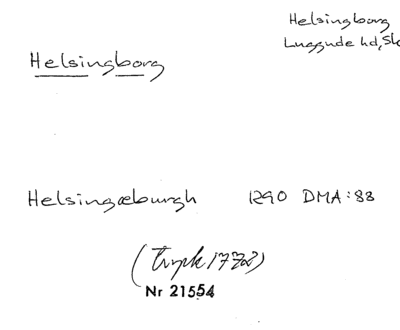 Helsingborg
Luggude hd, Sk
Helsingborg
Helsingæburgh 1290 DMA:88
(tryck 1772)
Nr 21554